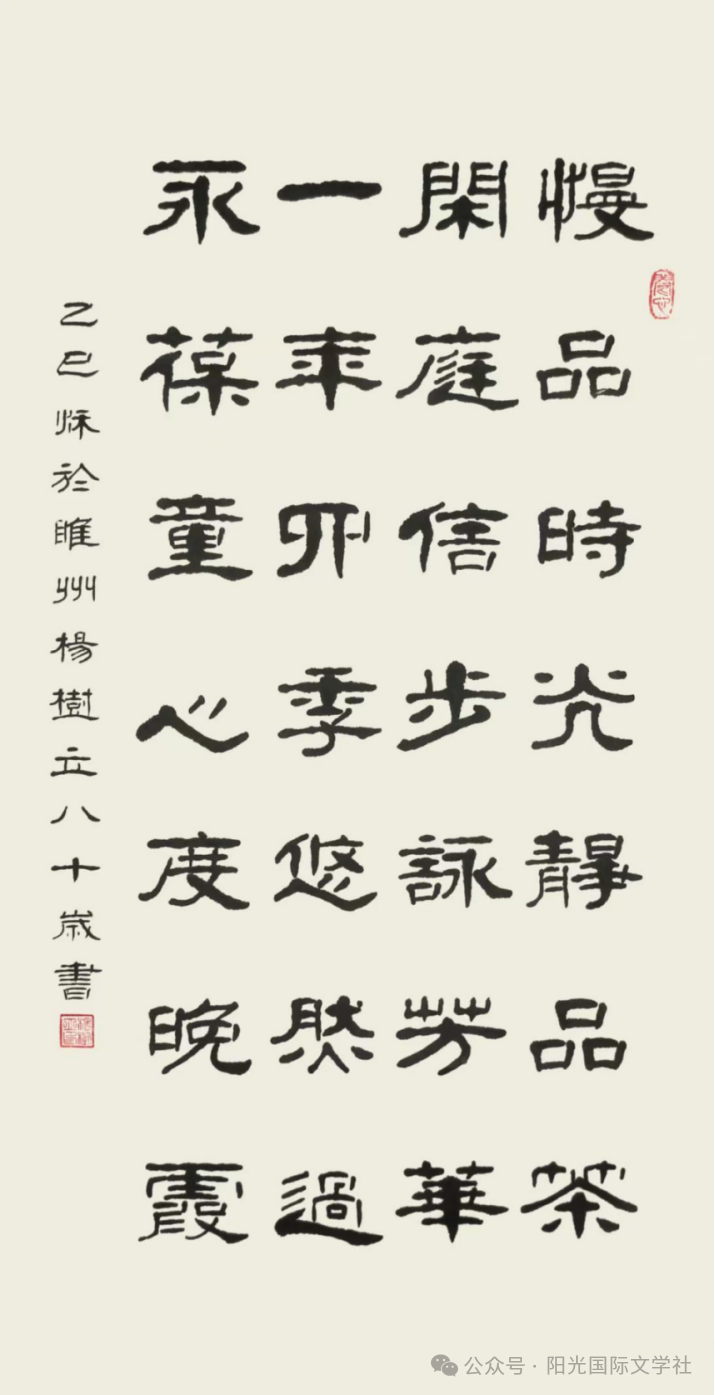 慢品時光靜品茶
閑庭信步詠芳華
一年四季悠然過
永葆童心度晚霞
乙巳秌於睢州楊樹立八十歲書
公众号 · 阳光国际文学社